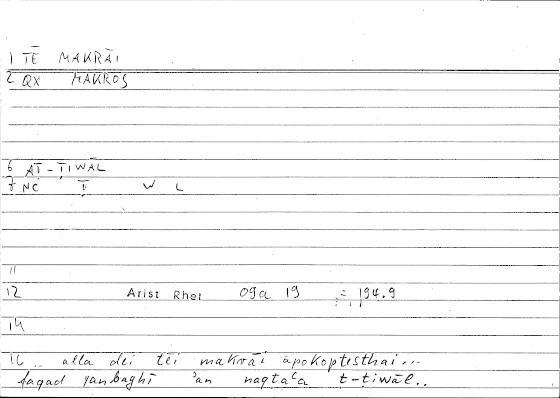 1 TĒ MAKRĀI
2 QX MAKROS
6 AṬ-ṬIWĀL
7 NC Ṭ W L
11
12 Arist Rhet 09a 19 = 194.9
14
16 .. alla dei tēi makrāi apokoptesthai...
faqad yanbaghī 'an naqta'a t-tiwāl..